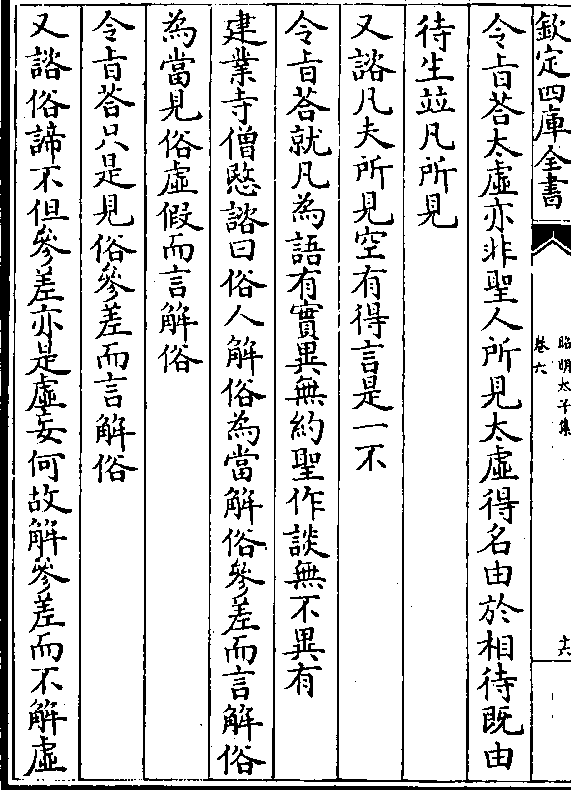 欽定四庫全書
昭明太子集
卷六
十六
令旨荅太虛亦非聖人所見太虛得名由於相待既由
待生並凡所見
又諮凡夫所見空有得言是一不
令旨荅就凡為語有實異無約聖作談無不異有
建業寺僧愍諮曰俗人解俗為當解俗參差而言解俗
為當見俗虛假而言解俗
令旨荅只是見俗參差而言解俗
又諮俗諦不但參差亦是虛妄何故解參差而不解虛